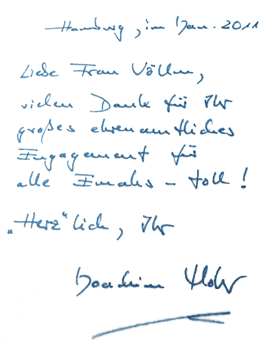 Hamburg, im Jan. 2011
Liebe Frau Völlm,
vielen Dank für Ihr
großes ehrenamtliches
Engagement für
alle - toll!
„Herz"lich, Ihr
Joachim